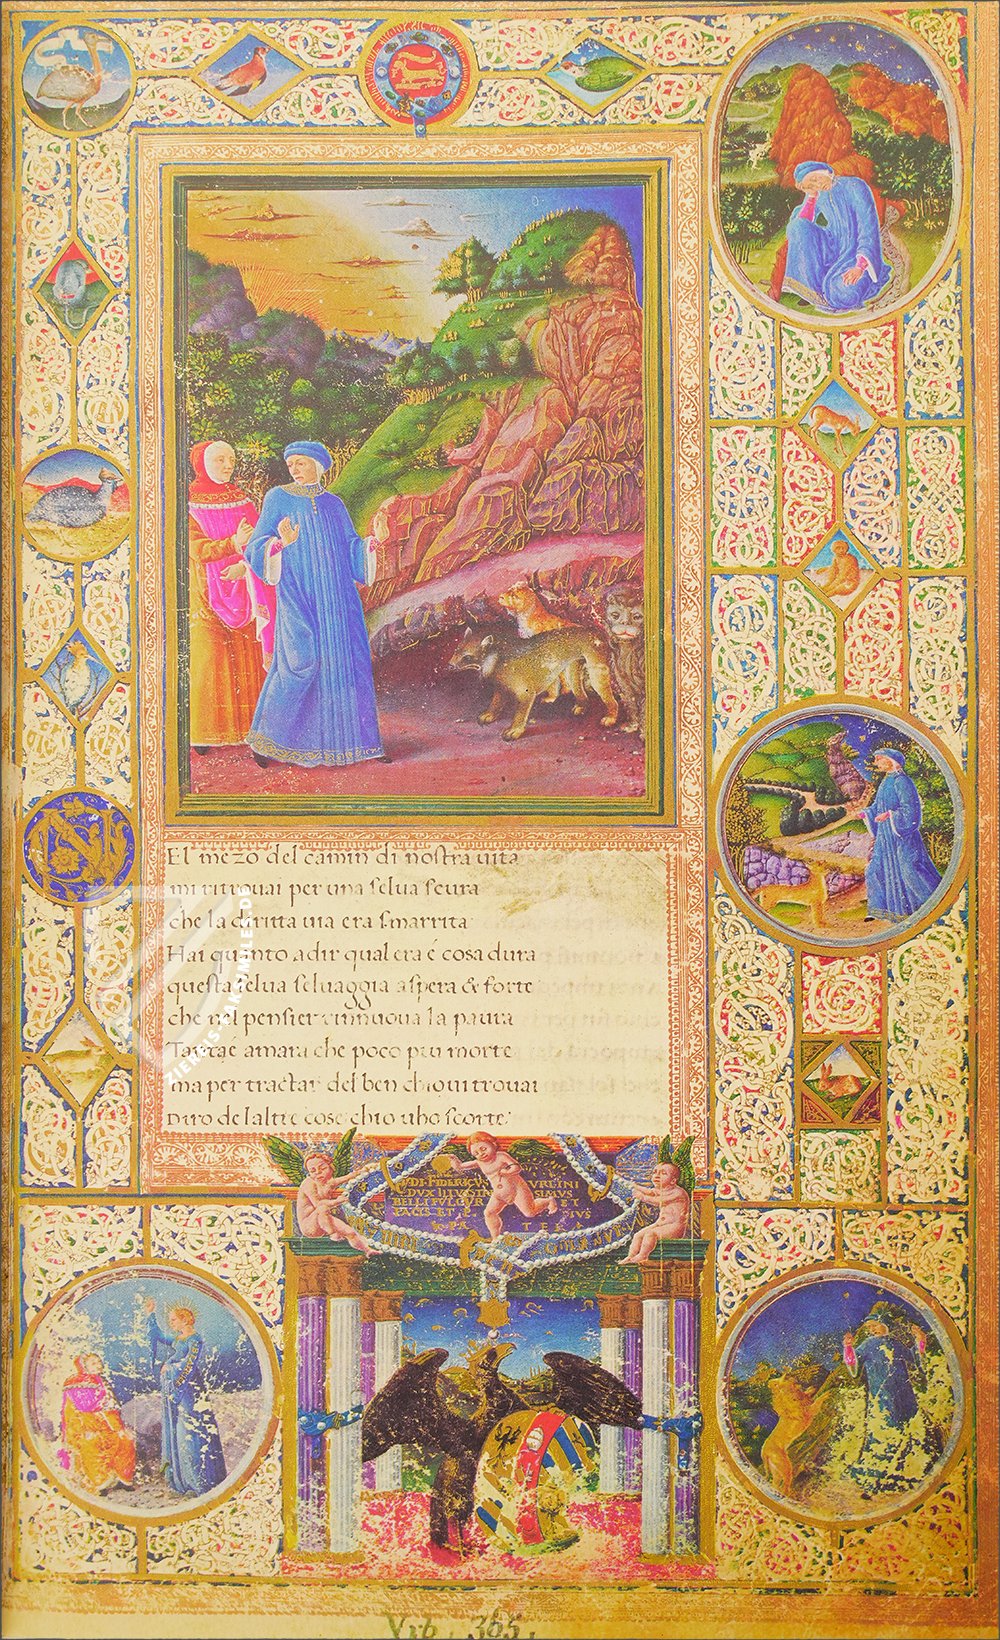 El mezo del camin di nostra uita
mi ritrouai per una selua scura
che la diritta uia era smarrita
Hai quanto adir qual era é cosa dura
questa selua seluaggia aspera & forte
che nel pensier rinnuoua la paura
Tant'é amara che poco piu morte
ma per tractar del ben chio ui trouai
Diro de laltre cose chio uho scorte
FEDERICUS URBINI
DUX ILLUSTRISSIMUS
BELLI FULGUR ET
PACIS ET
ZIEREIS FAKSIMILES.DE
Vrb. 365.